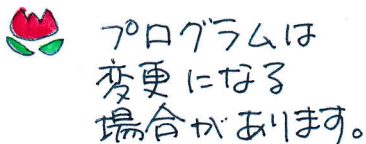 プログラムは
変更になる
場合があります。